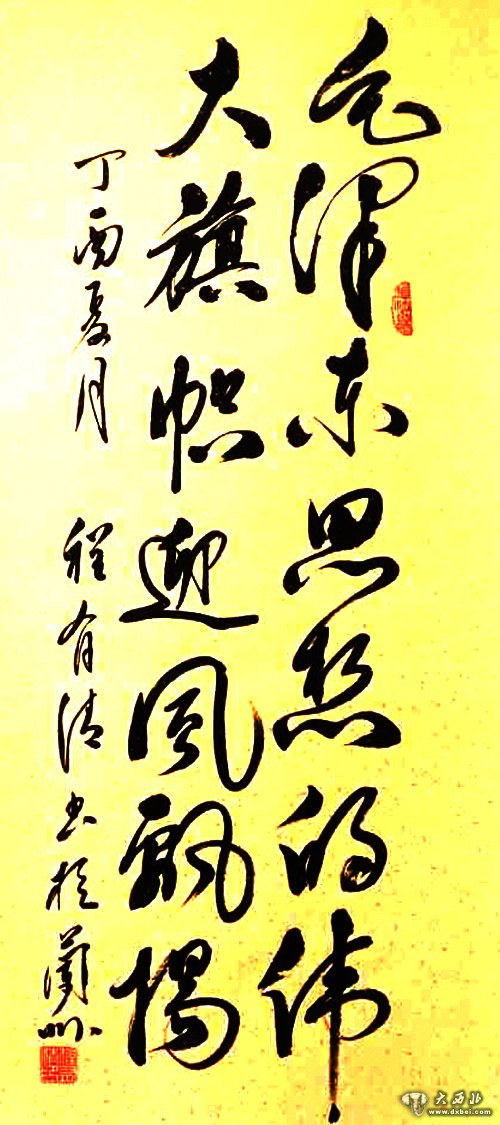 毛泽东思想的伟
大旗帜迎风飘扬
丁酉夏月 程有清书于兰州
大西北
www.dxbei.com